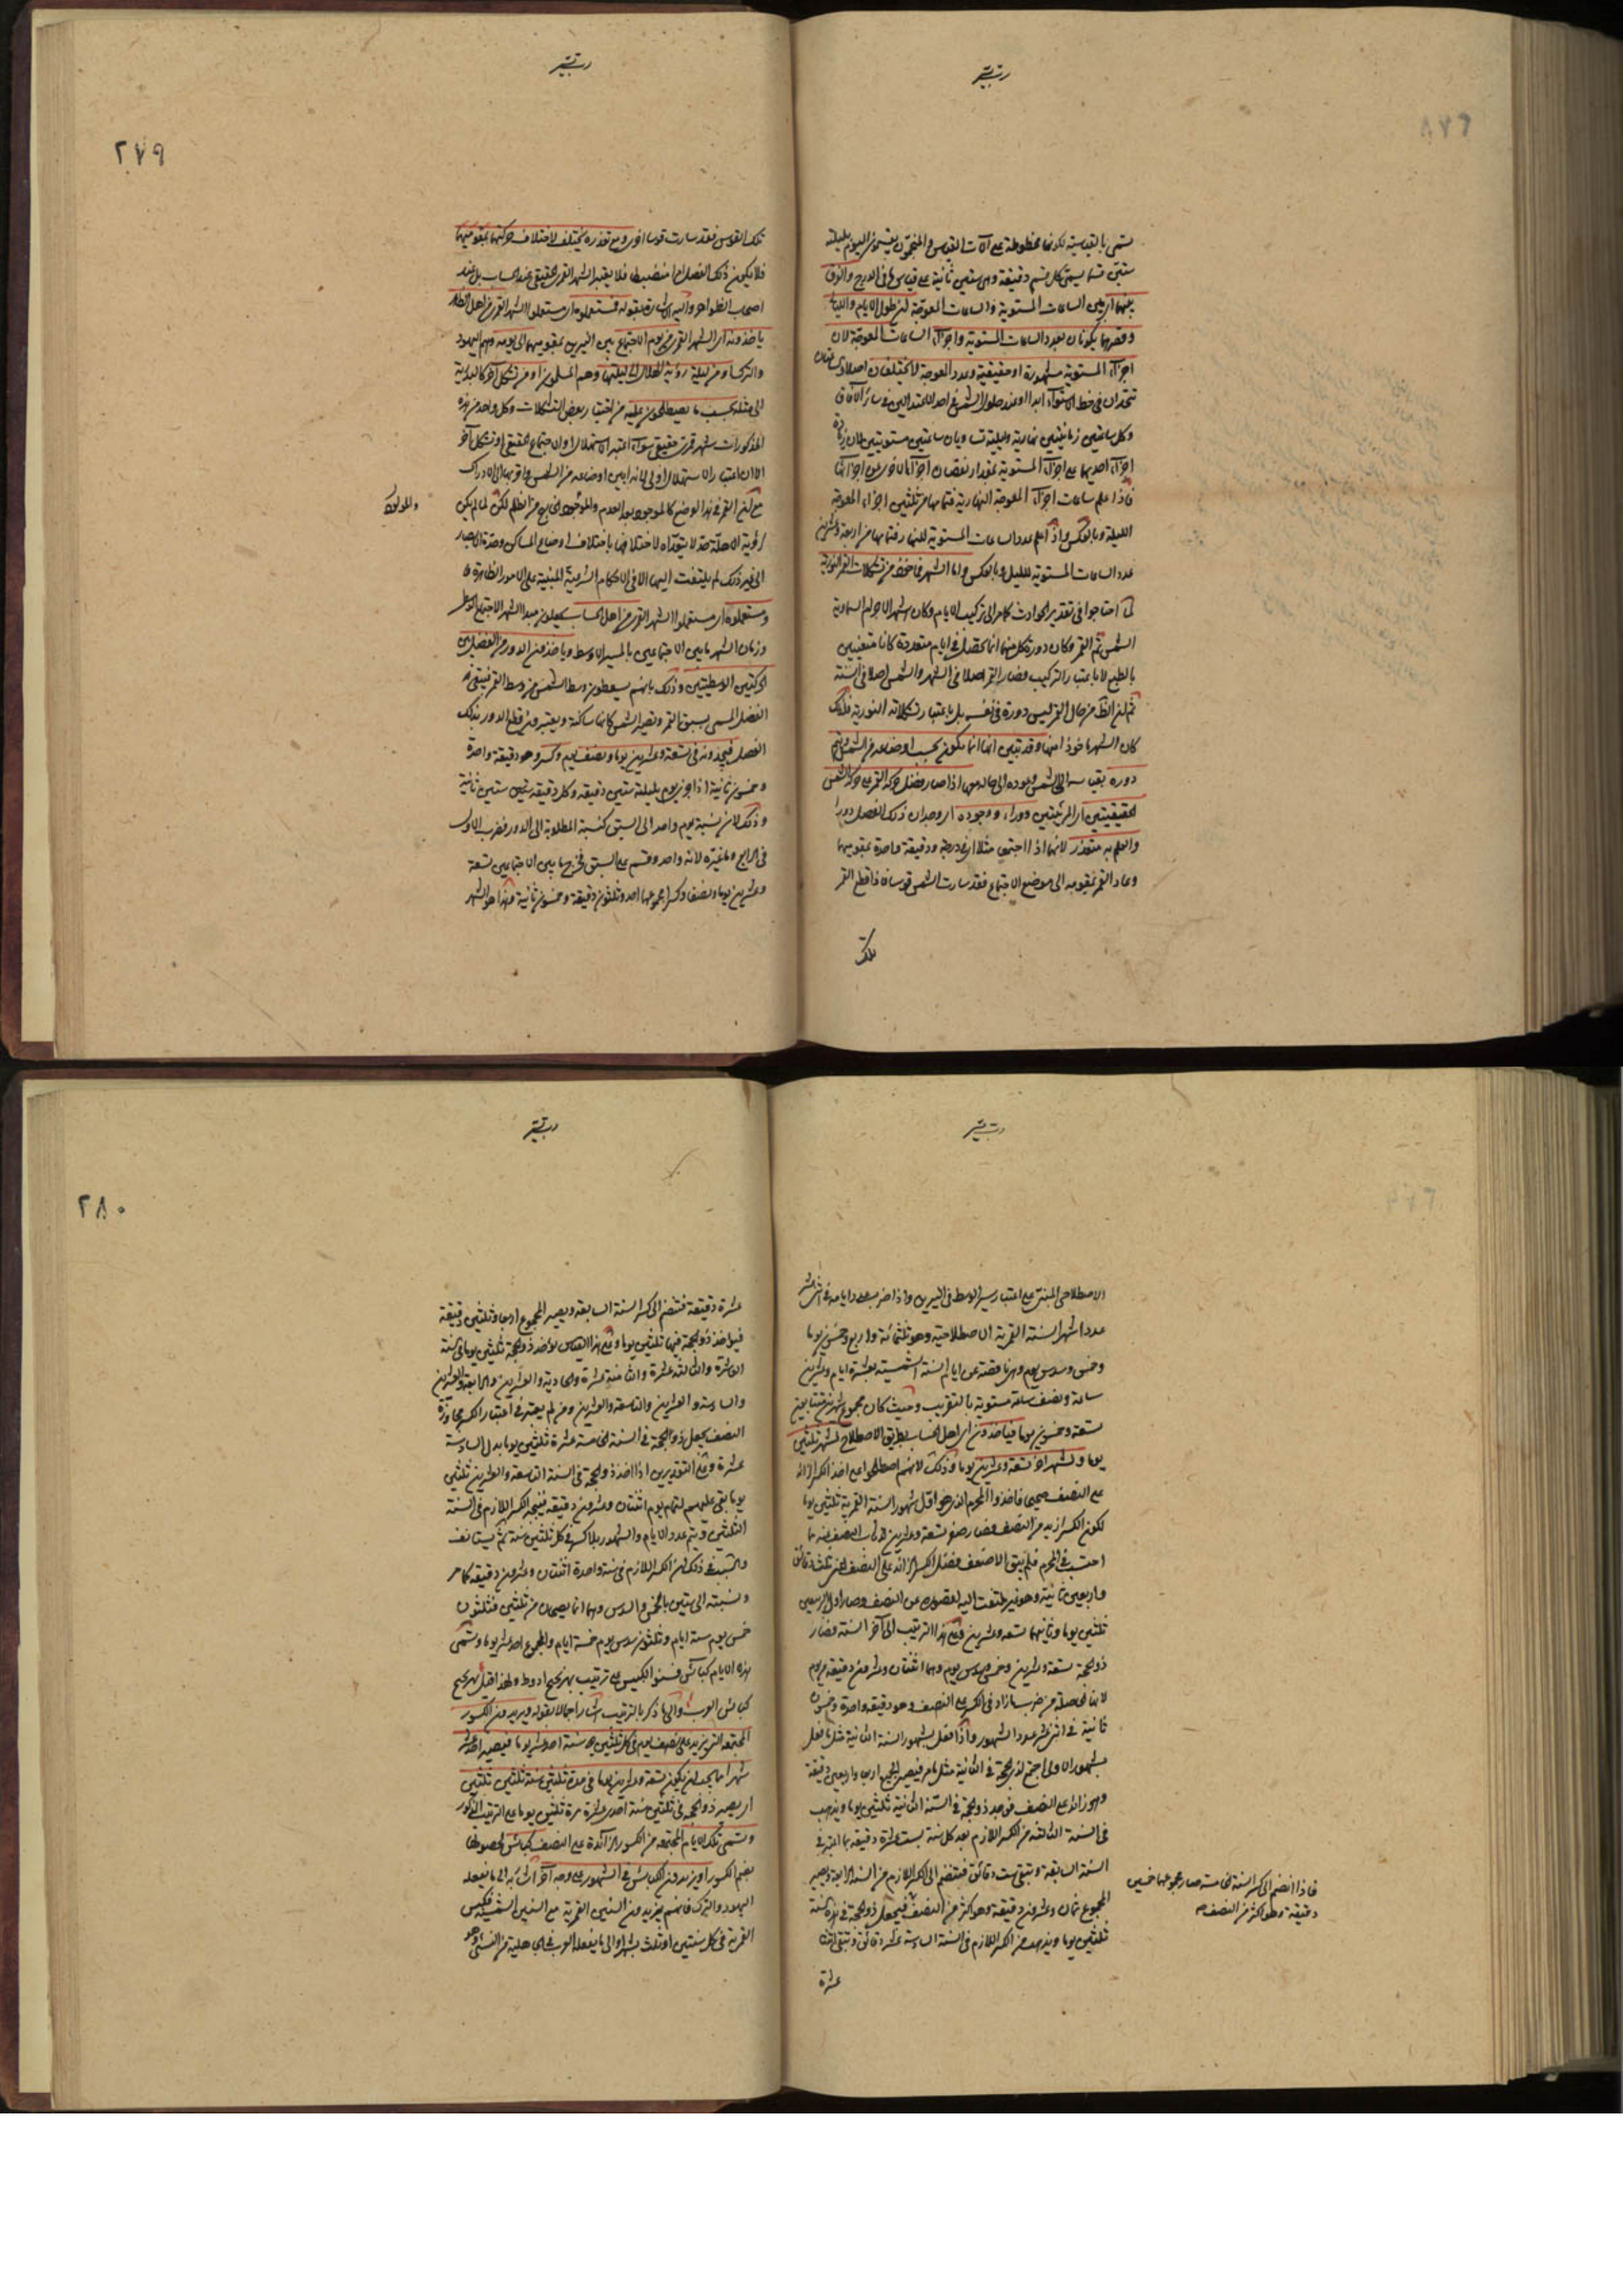 تسمى بالقدسية لكونها مخطوطة على آلات القياس والمنجمون يقسمون اليوم بليلته
ستين قسما يسمى كل قسم دقيقة وهي ستين ثانية على قياس ما في الدرج والفرق
بينهما اي بين الساعات المستوية والساعات المعوجة ان طول الايام والليالي
وقصرها يكونان بعدد الساعات المستوية واجزاء الساعات المعوجة لان
اجزاء المستوية مشهورة او حقيقية وعدد المعوجة لا يختلفان اصلا
تتحدان في خط الاستواء ابدا او عند حلول الشمس في احد الاعتدالين في سائر الآفاق
وكل ساعتين زمانيتين نهارية وليلية تساويان ساعتين مستويتين لان زيادة
اجزاء احديهما على اجزاء المستوية بمقدار نقصان اجزاء الاخرى عن اجزائها
فاذا علم ساعات اجزاء المعوجة النهارية فتمامها من ثلثين اجزاء المعوجة
الليلة وبالعكس واذا علم عدد الساعات المستوية للنهار فتمامها من اربعة وعشرين
عدد الساعات المستوية لليل وبالعكس واما الشهر فماخوذ من تشكلات القمر النورية
لما احتاجوا في تقدير الحوادث الى تركيب الايام وكان اشهر الاجرام السماوية
الشمس ثم القمر وكان دورة كل منهما انما تحصل في ايام متعددة كانا متعينين
بالطبع لاعتبار التركيب فصار القمر اصلا في الشهر والشمس اصلا في السنة
ثم لان الظ من حال القمر ليس دورة في نفسه بل باعتبار تشكلاته النورية فلذلك
كان الشهر ماخوذا منها وقد تبين انها انما تكون بحسب اوضاعه من الشمس
دوره بقياسه الى الشمس وعوده الى حاله معها اذا صار فضل حركة القمر على حركة الشمس
الحقيقيتين اي المرئيتين دورا ووجوده اي وجدان ذلك الفضل دورا
والعلم به متعذر لانهما اذا اجتمعا مثلا في درجة ودقيقة واحدة بتقويمهما
وعاد القمر بتقويمه الى موضع الاجتماع فقد سارت الشمس قوسا فاذا قطع القمر
تلك
٢٧٩
تلك القوس فقد سارت قوسا اخرى ومع تعذره يختلف لاختلاف حركتهما بتقويميهما
فلا يكون ذلك الفضل منضبطا فلا يعتبر الشهر القمري الحقيقي عند الحساب بل عند
اصحاب الظواهر واليه اشار بقوله فمستعملوه اي مستعملوا الشهر القمري من اهل الظاهر
ياخذونه اي الشهر القمري من يوم الاجتماع بين النيرين بتقويمهما الى يومه وهم اليهود
والترك او من ليلة رؤية الهلال الى ليلتها وهم المسلمون او من تشكل آخر كالبدرية
الى مثله بحسب ما يصطلحون عليه من اختيار بعض التشكلات وكل واحد من هذه
المذكورات شهر قمري حقيقي سواء اعتبر الاستهلال او الاجتماع الحقيقي او تشكل آخر
الا ان اعتبار الاستهلال اولى لانه ابين اوضاعه من الشمس واقربها الى الادراك
مع ان القمر في هذا الوضع كالموجود بعد العدم والمولود الخارج من الظلم لكن لما لم يكن
لرؤية الاهلة حد لا يتعداه لاختلافها باختلاف اوضاع المساكن وحدة الابصار
الى غير ذلك لم يلتفت اليها الا في الاحكام الشرعية المبنية على الامور الظاهرة
ومستعملوه اي مستعملوا الشهر القمري من اهل الحساب يجعلون مبدا الشهر الاجتماع الوسط
وزمان الشهر ما بين الاجتماعين بالمسير الاوسط وياخذون الدور من الفضل بين
الحركتين الوسطيتين وذلك بانهم يسقطون وسط الشمس من وسط القمر فيبقى
الفضل المسمى بسبق القمر وتصير الشمس كانها ساكنة ويعتبرون قطع الدور بذلك
الفضل فيجدونه في تسعة وعشرين يوما ونصف يوم وكسر وهو دقيقة واحدة
وخمسون ثانية اذا جزئ يوم بليلته ستين دقيقة وكل دقيقة ستين ثانية
وذلك لان نسبة يوم واحد الى السبق كنسبة المطلوبة الى الدور فضرب الاول
في الرابع وما غيره لانه واحد وقسم على السبق فخرج ما بين الاجتماعين تسعة
وعشرين يوما ونصفا وكسرا مجموعها احد وثلثون دقيقة وخمسون ثانية وهذا هو الشهر
الاصطلاحي المبني على اعتبار سير الاوسط في النيرين واذا ضرب عدد ايامه في اثني عشر
عدد اشهر السنة القمرية الاصطلاحية وهو ثلثمائة واربع وخمسين يوما
وخمس وسدس يوم وهي ناقصة عن ايام السنة الشمسية بعشرة ايام وعشرين
ساعة ونصف ساعة مستوية بالتقريب وحيث كان مجموع شهرين متتابعين
تسعة وخمسين يوما فياخذون اي اهل الحساب بطريق الاصطلاح لشهر ثلثين
يوما ولشهر آخر تسعة وعشرين يوما وذلك لانهم اصطلحوا على اخذ الكسر الزائد
على النصف صحيحا فاخذوا المحرم الذي هو اول شهور السنة القمرية ثلثين يوما
لكون الكسر ازيد من النصف فصار صفر تسعة وعشرين لذهاب النصف منه بما
احتسب في المحرم فلم يبق الا ضعف فضل الكسر الزائد على النصف اعني ثلث دقائق
واربعين ثانية وهو غير ملتفت اليه لقصوره عن النصف وصار اول الربيعين
ثلثين يوما وثانيهما تسعة وعشرين وعلى هذا الترتيب الى آخر السنة فصار
ذو الحجة تسعة وعشرين وخمس وسدس يوم وهما اثنتان وعشرون دقيقة من يوم
لانها حاصلة من ضرب ما زاد في الكسر على النصف وهو دقيقة واحدة وخمسون
ثانية في اثني عشر عدد الشهور واذا فعل بشهور السنة الثانية مثل ما فعل
بشهور الاولى اجتمع لذي الحجة في الثانية مثل ما مر فيصير الجميع اربعا واربعين دقيقة
وهو زائد على النصف فيوخذ ذو الحجة في السنة الثانية ثلثين يوما ويذهب
في السنة الثالثة من الكسر اللازم بعد كل سنة بست عشرة دقيقة بما اعتبر في
السنة السابقة وتبقى ست دقائق فتنضم الى الكسر اللازم من السنة الرابعة ويصير
المجموع ثمان وعشرون دقيقة وهو اكثر من النصف فيجعل ذو الحجة في هذه السنة
ثلثين يوما ويذهب من الكسر اللازم في السنة السادسة عشر دقائق وتبقى اثنتا
عشرة
فاذا انضم الى كسر السنة الخامسة صار مجموعها خمسين
دقيقة وهو اكثر من النصف
٢٨٠
عشرة دقيقة فتنضم الى كسر السنة السابعة ويصير المجموع اربعا وثلثين دقيقة
فيؤخذ ذو الحجة فيها ثلثين يوما وعلى هذا القياس يؤخذ ذو الحجة ثلثين يوما في السنة
العاشرة والثالثة عشرة والثامنة عشرة والحادية والعشرين والرابعة والعشرين
والسادسة والعشرين والتاسعة والعشرين ومن لم يعتبر في اعتبار الكسر مجاوزة
النصف يجعل ذو الحجة في السنة الخامسة عشرة ثلثين يوما بدل السادسة
عشرة وعلى التقديرين اذا اخذ ذو الحجة في السنة التاسعة والعشرين ثلثين
يوما بقي عليهم لتمام يوم اثنتان وعشرون دقيقة فينجبر الكسر اللازم في السنة
الثلثين ويتم عدد الايام والشهور بلا كسر في كل ثلثين سنة ثم يستانف
والسبب في ذلك ان الكسر اللازم في سنة واحدة اثنتان وعشرون دقيقة كما مر
ونسبته الى ستين بالخمس والسدس وهما انما يصحان من ثلثين فثلثون
خمس يوم ستة ايام وثلثون سدس يوم خمسة ايام والمجموع احد عشر يوما وتسمى
هذه الايام كبائس فسنوا الكبيس على ترتيب بهزيجح ادوط ولهذا قيل بهزيجح
كبائس العرب والى ما ذكر بالترتيب اشار اجمالا بقوله ويزيدون الكسور
المجتمعة التي يزيد على نصف يوم في كل ثلثين سنة احد عشر يوما فيصير احد عشر
شهرا مما يجب ان يكون تسعة وعشرين يوما في مدة ثلثين سنة ثلثين ثلثين
اي يصير ذو الحجة في ثلثين سنة احدى عشرة مرة ثلثين يوما على الترتيب المذكور
وتسمى تلك الايام المجتمعة من الكسور الزائدة على النصف كبائس لحصولها
بضم الكسور او يزيدون الكبائس في الشهور على وجه آخر اشارة الى ما يفعله
اليهود والترك فانهم يزيدون السنين القمرية مع السنين الشمسية فيكبس
القمرية في كل سنتين او ثلث بشهر او الى ما يفعله العرب في الجاهلية من النسيء وهو